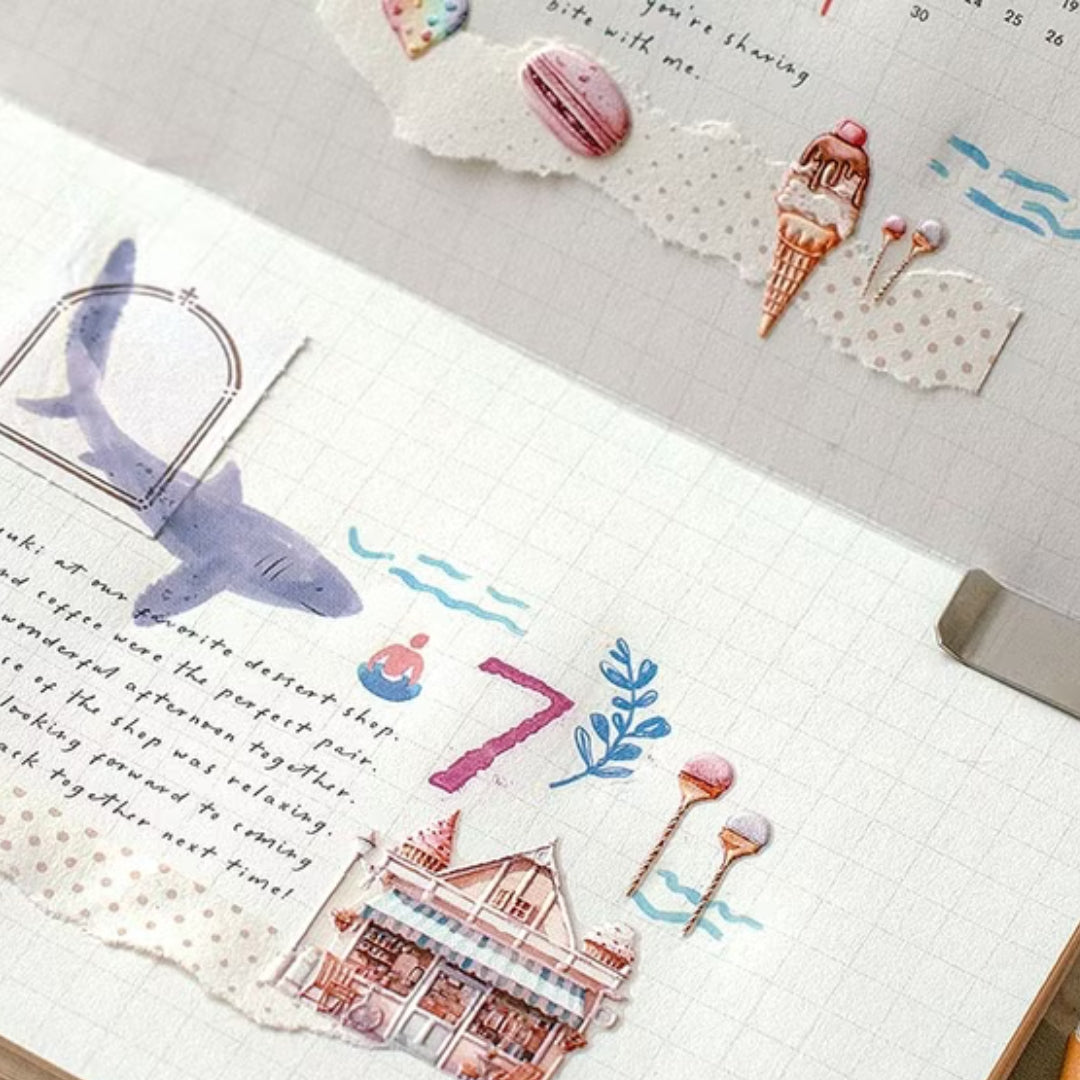 you're sharing
bite with me.
19
24
25
26
30
at our favorite dessert shop.
coffee were the perfect pair.
wonderful afternoon together.
of the shop was relaxing.
looking forward to coming
together next time!
7